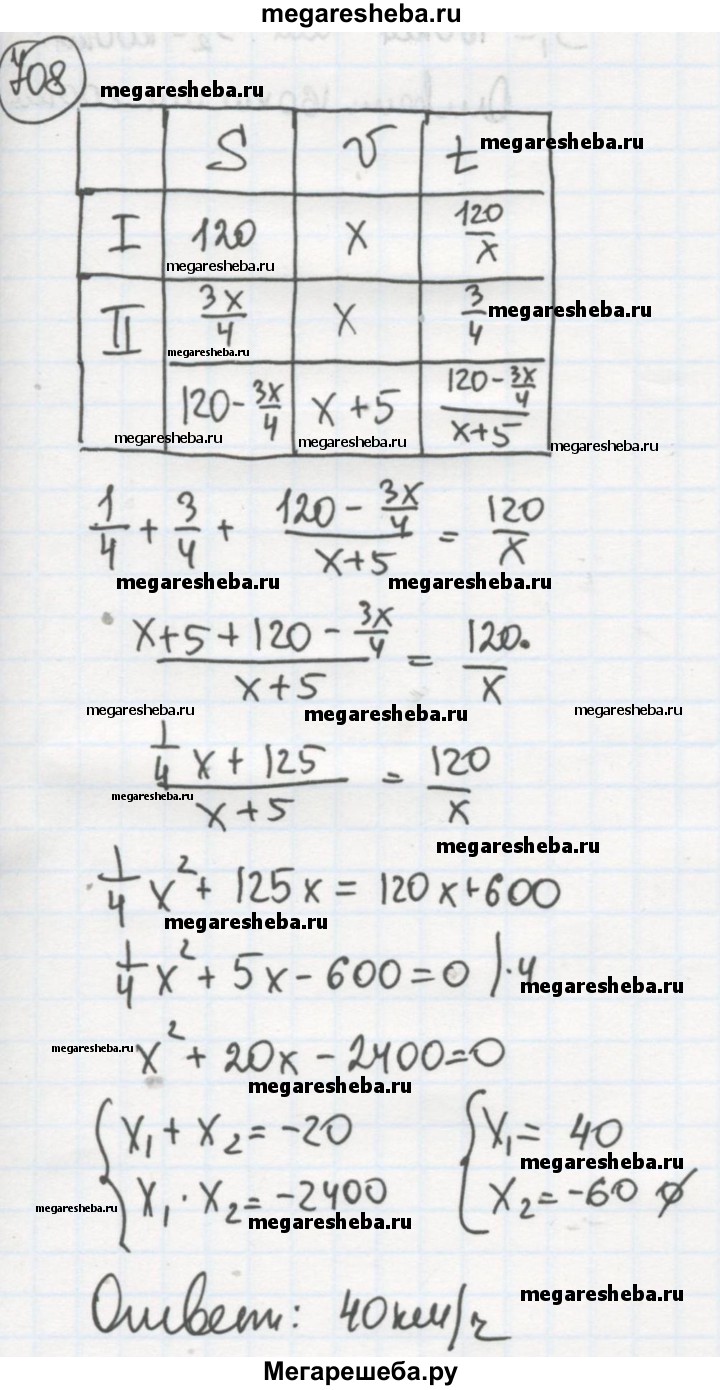 megaresheba.ru
708
megaresheba.ru
S v t megaresheba.ru
I 120 x 120/x
megaresheba.ru
II 3x/4 x 3/4 megaresheba.ru
megaresheba.ru
120 - 3x/4 x + 5 (120 - 3x/4)/(x+5)
megaresheba.ru megaresheba.ru megaresheba.ru
1/4 + 3/4 + (120 - 3x/4)/(x+5) = 120/x
megaresheba.ru megaresheba.ru
(x+5+120 - 3x/4)/(x+5) = 120./x
megaresheba.ru megaresheba.ru megaresheba.ru
(1/4 x + 125)/(x+5) = 120/x
megaresheba.ru
megaresheba.ru
1/4 x² + 125x = 120x+600
megaresheba.ru
1/4 x² + 5x - 600 = 0 |·4 megaresheba.ru
megaresheba.ru x² + 20x - 2400=0
megaresheba.ru
{ x₁ + x₂ = -20 { x₁ = 40
megaresheba.ru
x₁ · x₂ = -2400 x₂ = -60 ∅
megaresheba.ru megaresheba.ru
megaresheba.ru
Ответ: 40 км/ч
Мегарешеба.ру